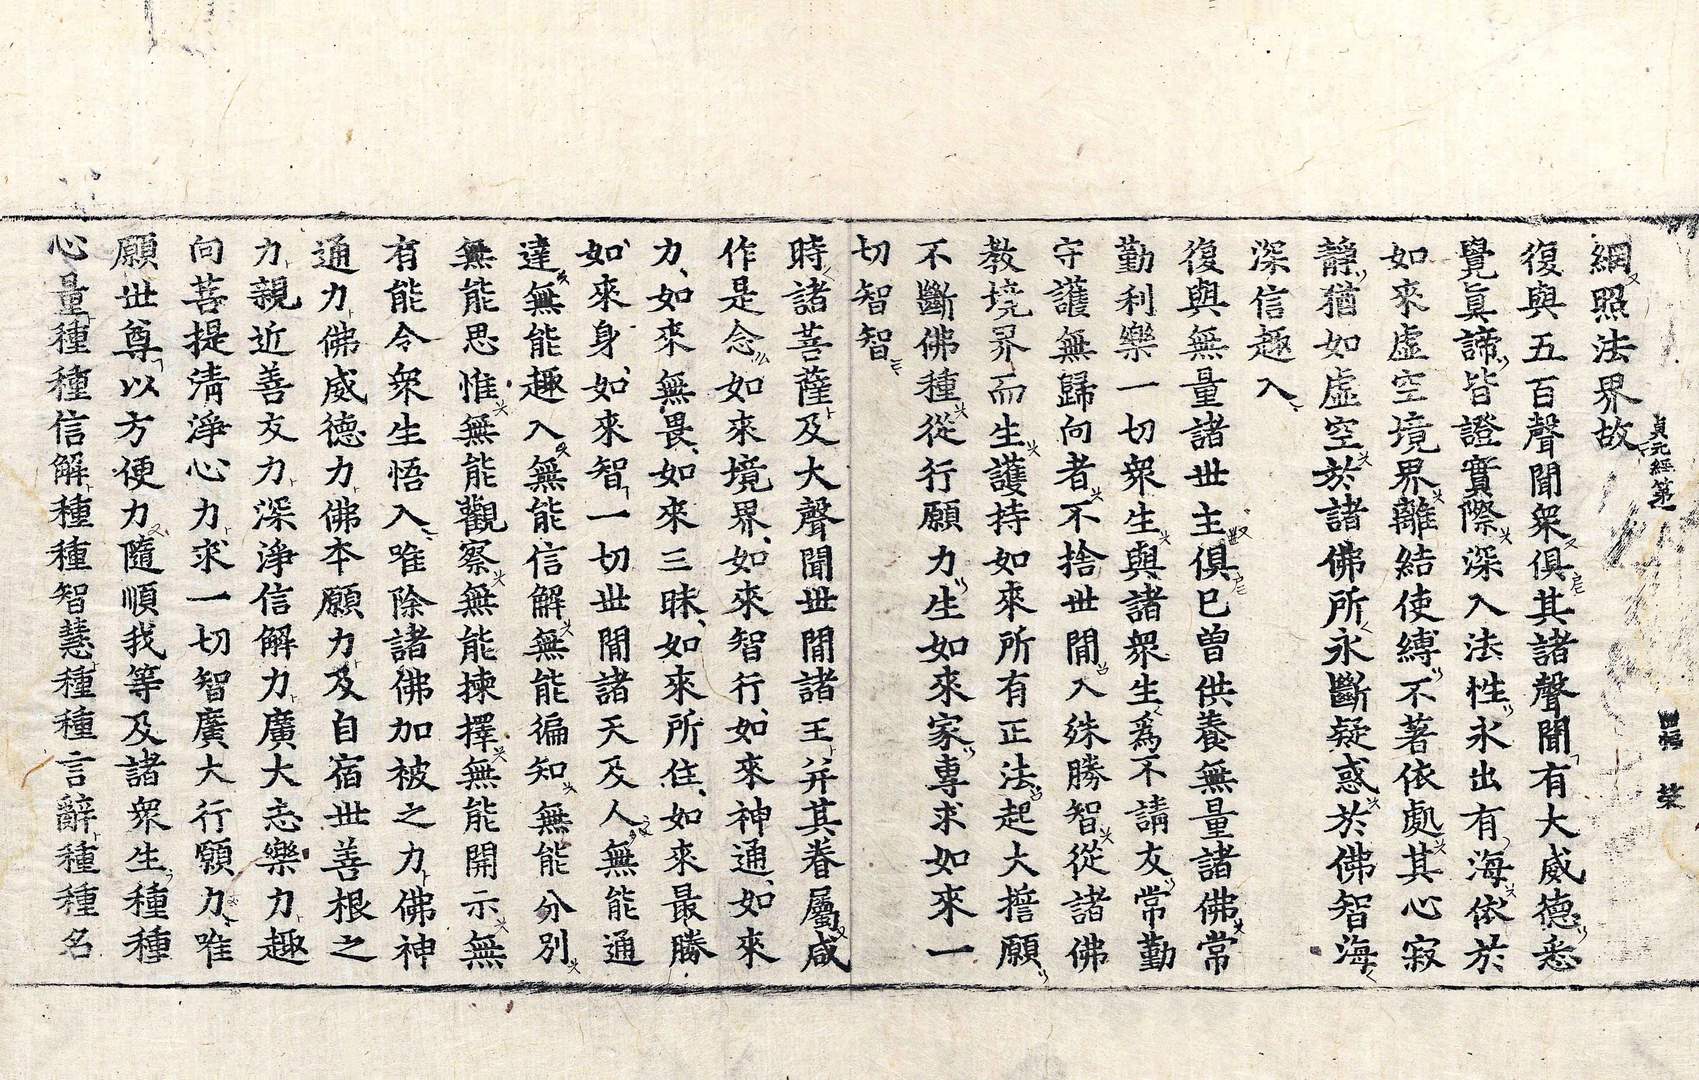 網照法界故
貞元經第一
復與五百聲聞衆俱其諸聲聞有大威德悉
覺眞諦皆證實際深入法性永出有海依於
如來虛空境界離結使縛不著依處其心寂
靜猶如虛空於諸佛所永斷疑惑於佛智海
深信趣入
復與無量諸世主俱已曾供養無量諸佛常
勤利樂一切衆生與諸衆生爲不請友常勤
守護無歸向者不捨世閒入殊勝智從諸佛
教境界而生護持如來所有正法起大誓願
不斷佛種從行願力生如來家專求如來一
切智智
時諸菩薩及大聲聞世閒諸王幷其眷屬咸
作是念如來境界如來智行如來神通如來
力如來無畏如來三昧如來所住如來最勝
如來身如來智一切世閒諸天及人無能通
達無能趣入無能信解無能徧知無能分別
無能思惟無能觀察無能揀擇無能開示無
有能令衆生悟入唯除諸佛加被之力佛神
通力佛威德力佛本願力及自宿世善根之
力親近善友力深淨信解力廣大志樂力趣
向菩提清淨心力求一切智廣大行願力唯
願世尊以方便力隨順我等及諸衆生種種
心量種種信解種種智慧種種言辭種種名